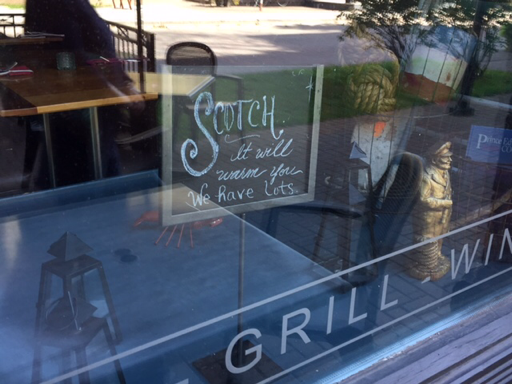 SCOTCH,
It will
warm you
We have Lots.
GRILL - WIN